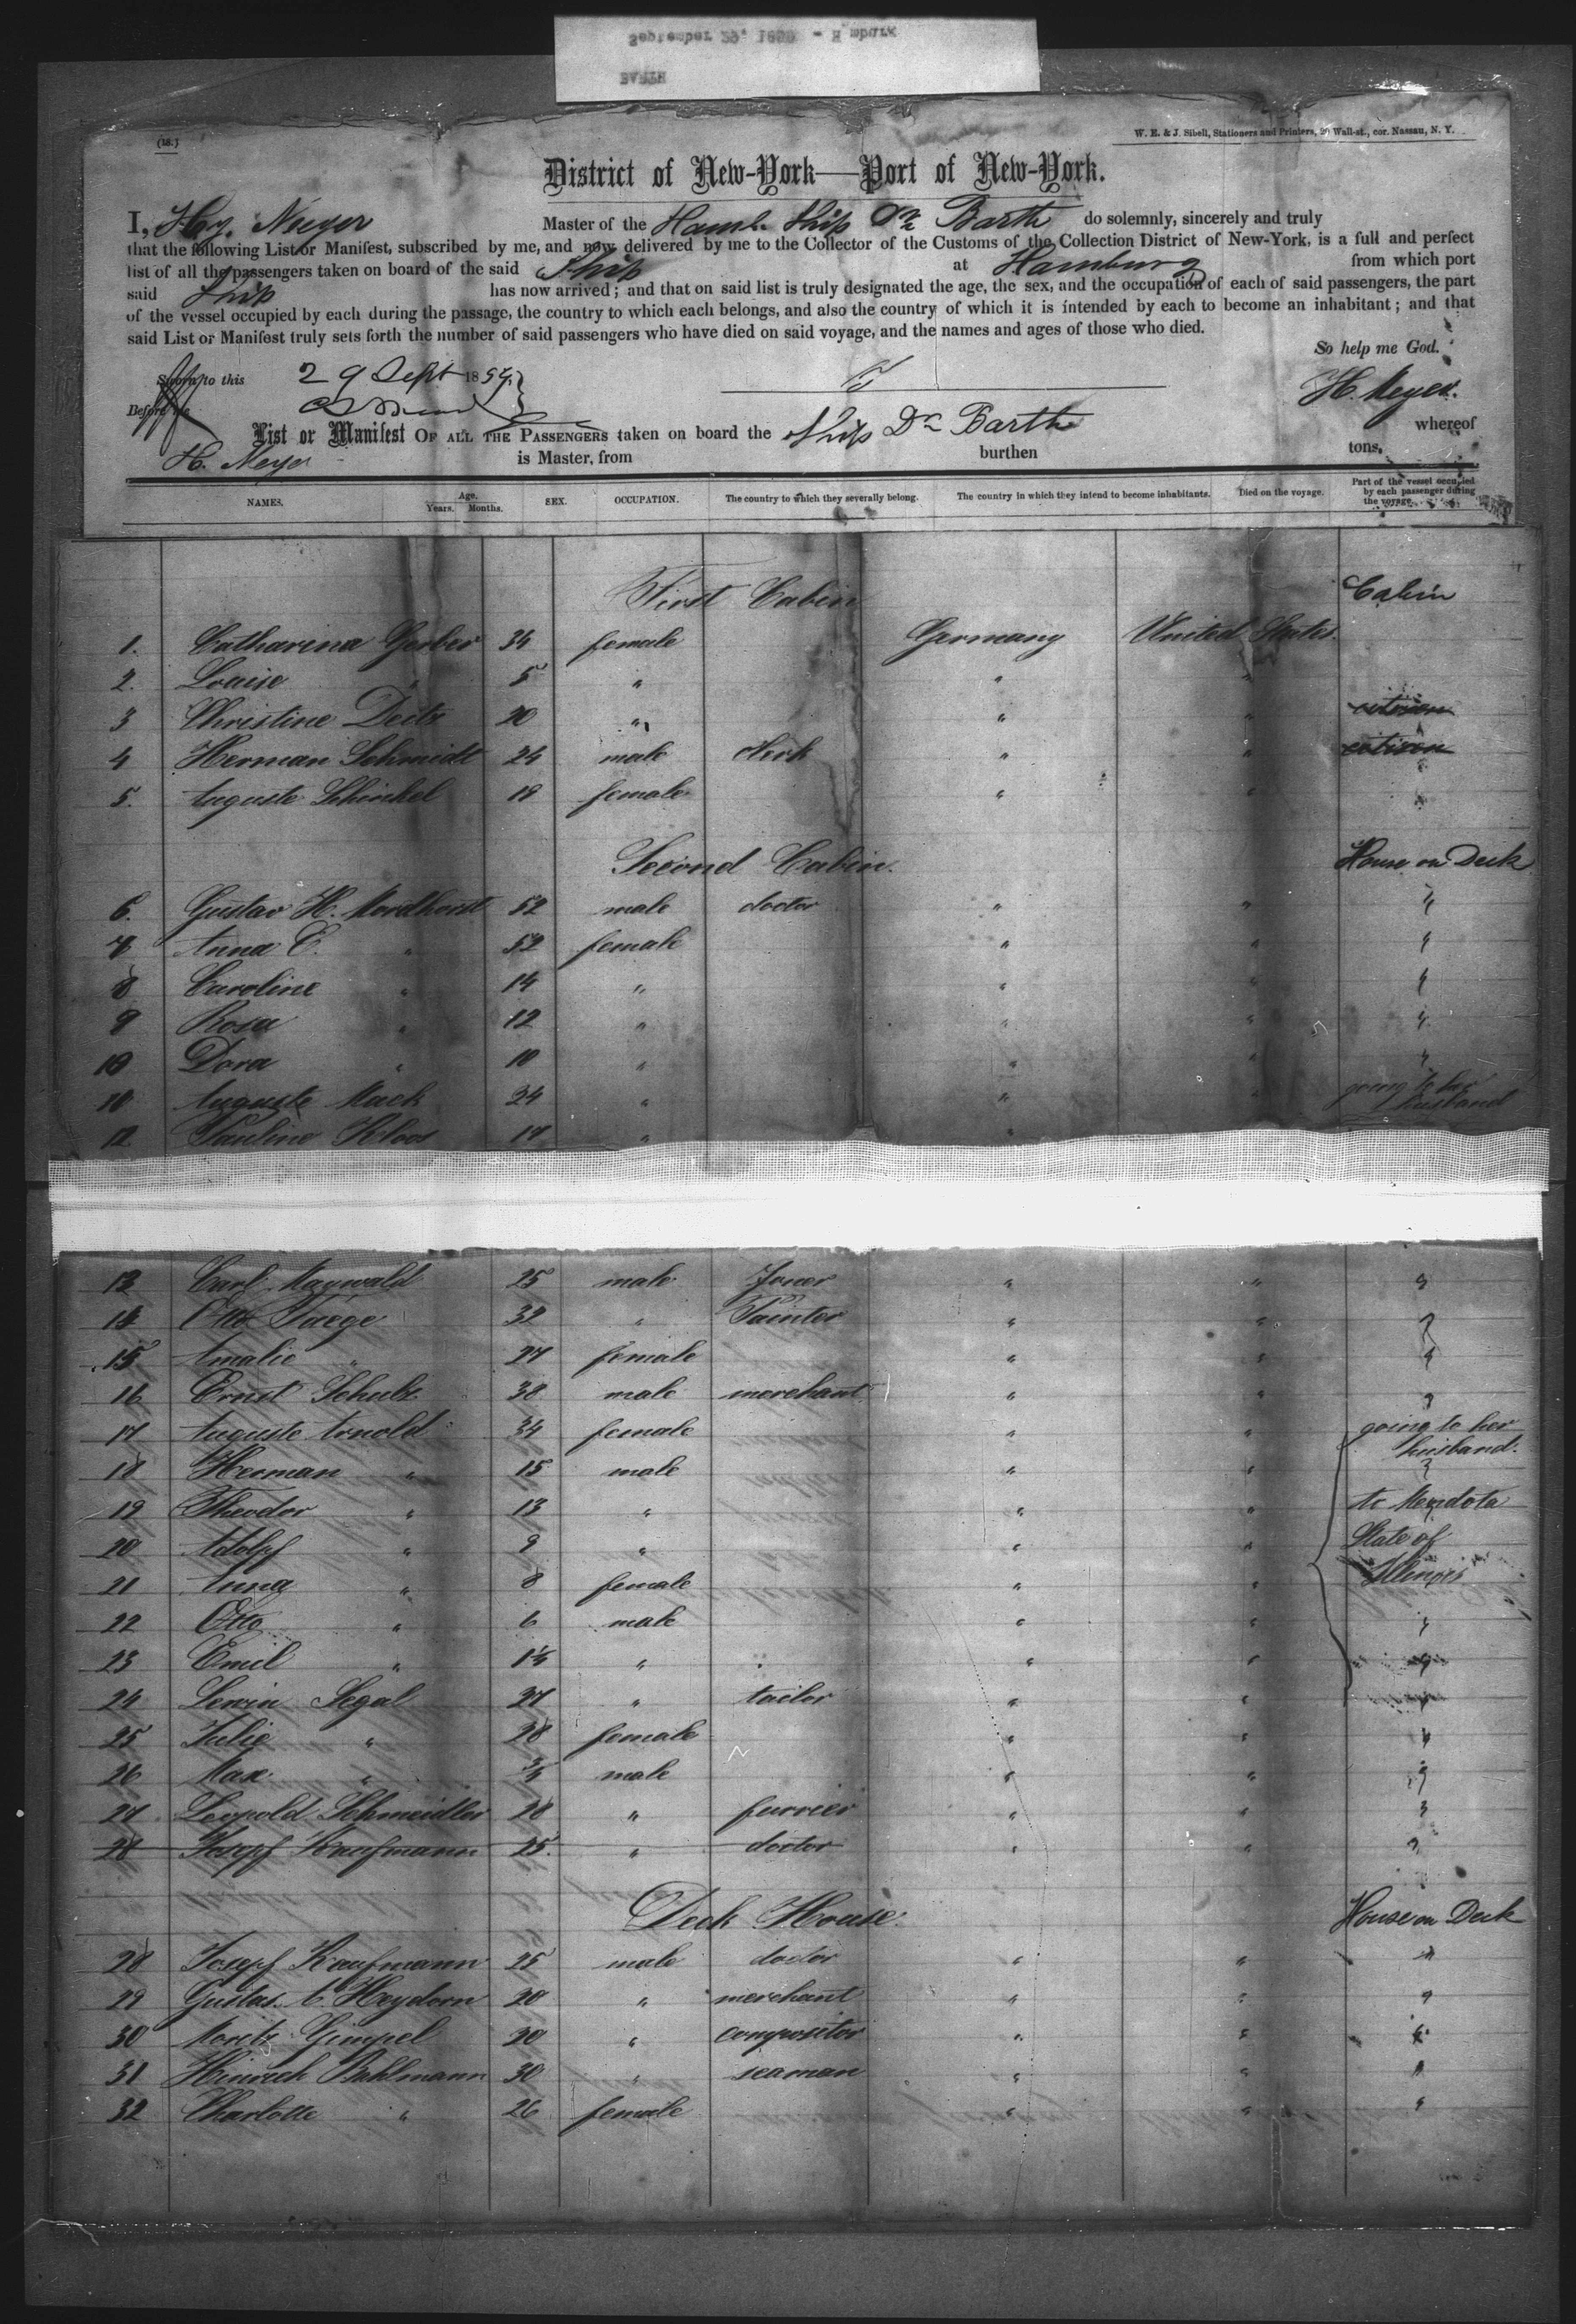 (18.)
W. E. & J. Sibell, Stationers and Printers, 20 Wall-st., cor. Nassau, N. Y.
District of New-York—Port of New-York.
I, Hy. Meyer Master of the Hamb. Ship Dr Barth do solemnly, sincerely and truly
that the following List or Manifest, subscribed by me, and now delivered by me to the Collector of the Customs of the Collection District of New-York, is a full and perfect
list of all the passengers taken on board of the said Ship at Hamburg from which port
said Ship has now arrived; and that on said list is truly designated the age, the sex, and the occupation of each of said passengers, the part
of the vessel occupied by each during the passage, the country to which each belongs, and also the country of which it is intended by each to become an inhabitant; and that
said List or Manifest truly sets forth the number of said passengers who have died on said voyage, and the names and ages of those who died.
So help me God.
Sworn to this 29 Sept 1859.
H. Meyer.
Before me
List or Manifest OF ALL THE PASSENGERS taken on board the Ship Dr Barth whereof
H. Meyer is Master, from burthen tons,
NAMES. Age. Years. Months. SEX. OCCUPATION. The country to which they severally belong. The country in which they intend to become inhabitants. Died on the voyage. Part of the vessel occupied by each passenger during the voyage.
First Cabin Cabin
1. Catharina Gerber 34 female Germany United States.
2. Louise " 5 " " "
3 Christine Deitz 20 " " " citizen
4 Herman Schmidt 24 male clerk " " citizen
5. Auguste Schinkel 18 female " " "
Second Cabin. House on Deck
6. Gustav H. Mordhorst 52 male doctor " " "
7 Anna C. " 52 female " " "
8 Caroline " 14 " " " "
9 Rosa " 12 " " " "
10 Dora " 10 " " " "
10 Auguste Mack 24 " " " going to her husband
12 Pauline Kloos 17 " "
13 Carl Maywald 25 male Joner " " "
14 Otto Taege 32 " Painter " " "
15 Amalie " 27 female " " "
16 Ernst Schulz 38 male merchant " " "
17 Auguste Arnold 34 female " " going to her husband.
18 Herman " 15 male " " "
19 Theodor " 13 " " " to Mendota
20 Adolf " 9 " " " State of
21 Anna " 8 female " " Illinois
22 Otto " 6 male " " "
23 Emil " 1¼ " " " "
24 Lewin Segal 27 " tailor " " "
25 Julie " 28 female " " "
26 Max " ¾ male " " "
27 Leopold Schmeidler 28 " furrier " " "
28 Josepf Kaufmann 25. " doctor " " "
Deck House. House on Deck
28 Josepf Kaufmann 25 male doctor " " "
29 Gustav. C. Heydorn 20 " merchant " " "
30 Moritz Gimpel 20 " compositor " " "
31 Hinrich Bahlmann 30 " seaman " " "
32 Charlotte " 26 female " " "